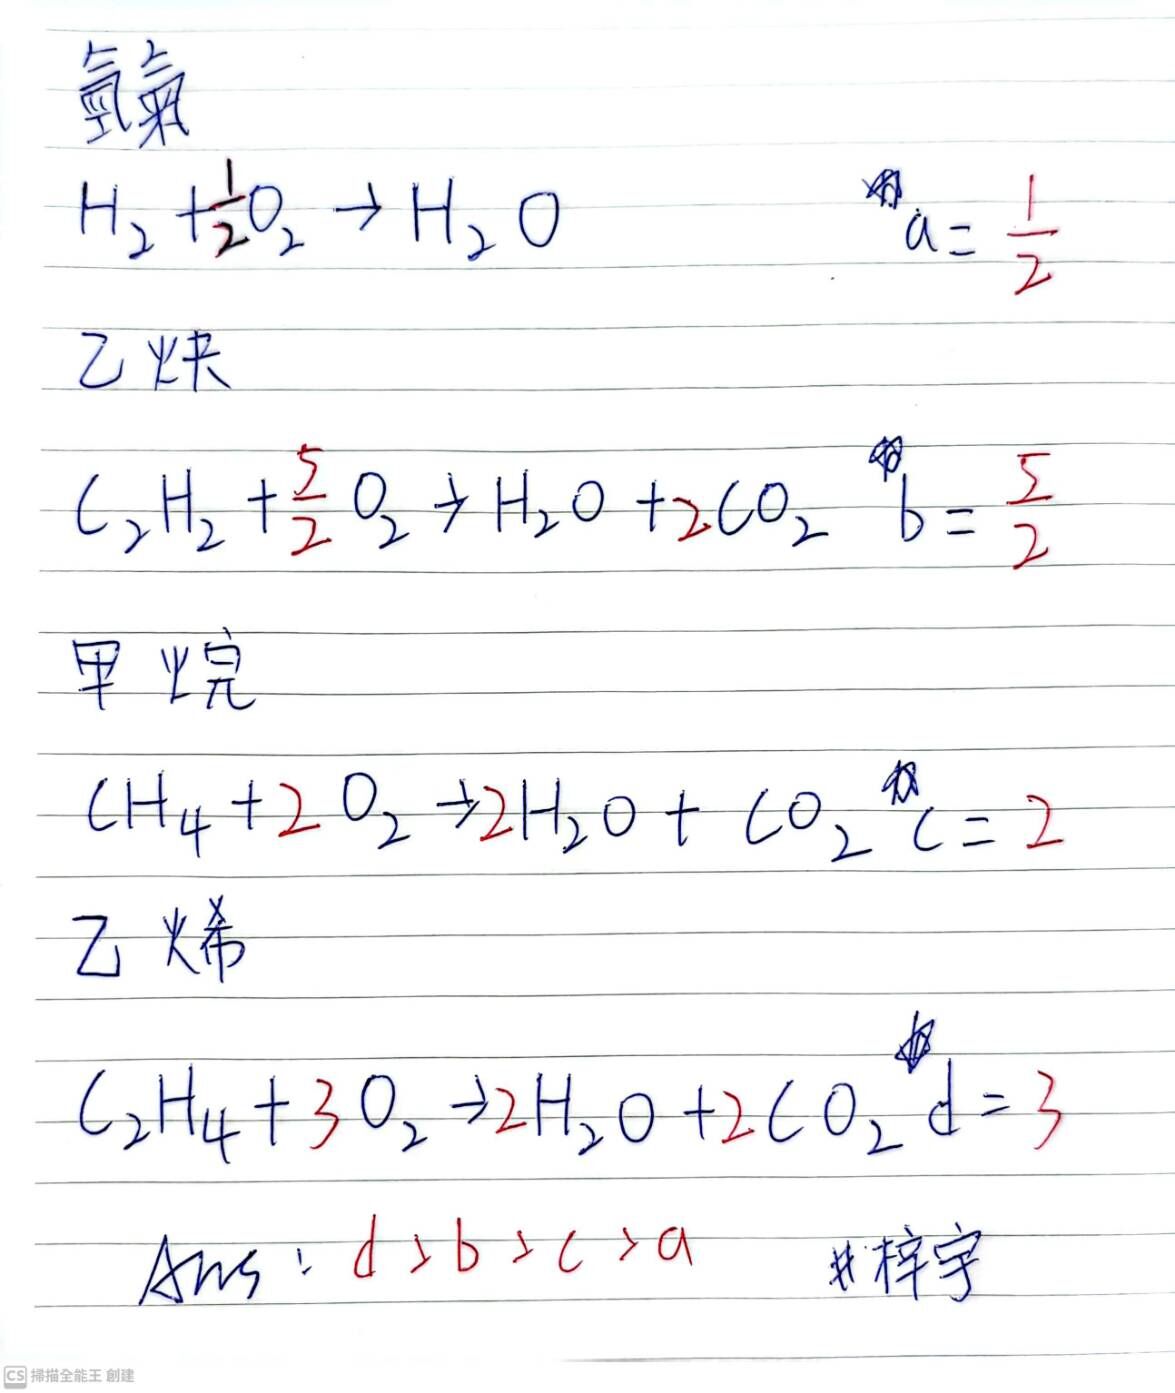 氫氣
H₂ + 1/2 O₂ → H₂O a = 1/2
乙炔
C₂H₂ + 5/2 O₂ → H₂O + 2CO₂ b = 5/2
甲烷
CH₄ + 2O₂ → 2H₂O + CO₂ c = 2
乙烯
C₂H₄ + 3O₂ → 2H₂O + 2CO₂ d = 3
Ans: d > b > c > a #梓宇
CS 掃描全能王 創建